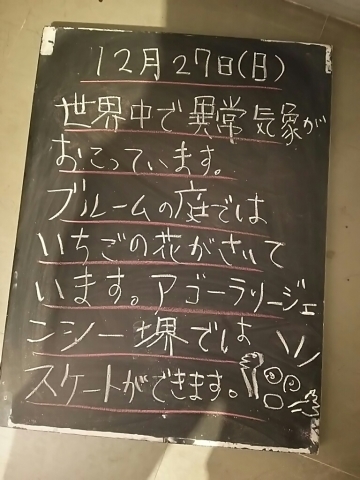 12月27日(日)
世界中で異常気象が
おこっています。
ブルームの庭では
いちごの花がさいて
います。アゴーラリージェ
ンシー堺では
スケートができます。